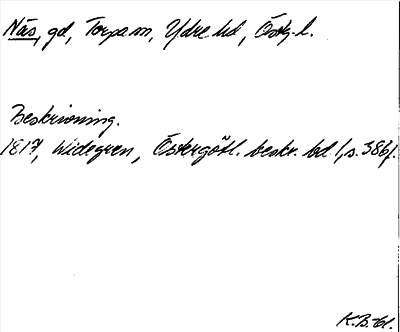 Näs, gd, Torpa sn, Ydre hd, Östg. l.
Beskrivning.
1817, Widegren, Östergötl. beskr. bd 1, s. 386f.
K.B. tl.